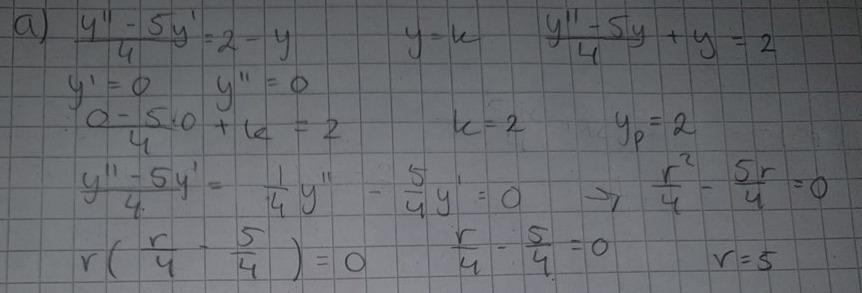 a) (y'' - 5y')/4 = 2 - y    y = k    (y'' - 5y)/4 + y = 2
y' = 0    y'' = 0
(0 - 5·0)/4 + k = 2    k = 2    y_p = 2
(y'' - 5y')/4 = 1/4 y'' - 5/4 y' = 0    → r²/4 - 5r/4 = 0
r(r/4 - 5/4) = 0    r/4 - 5/4 = 0    r = 5